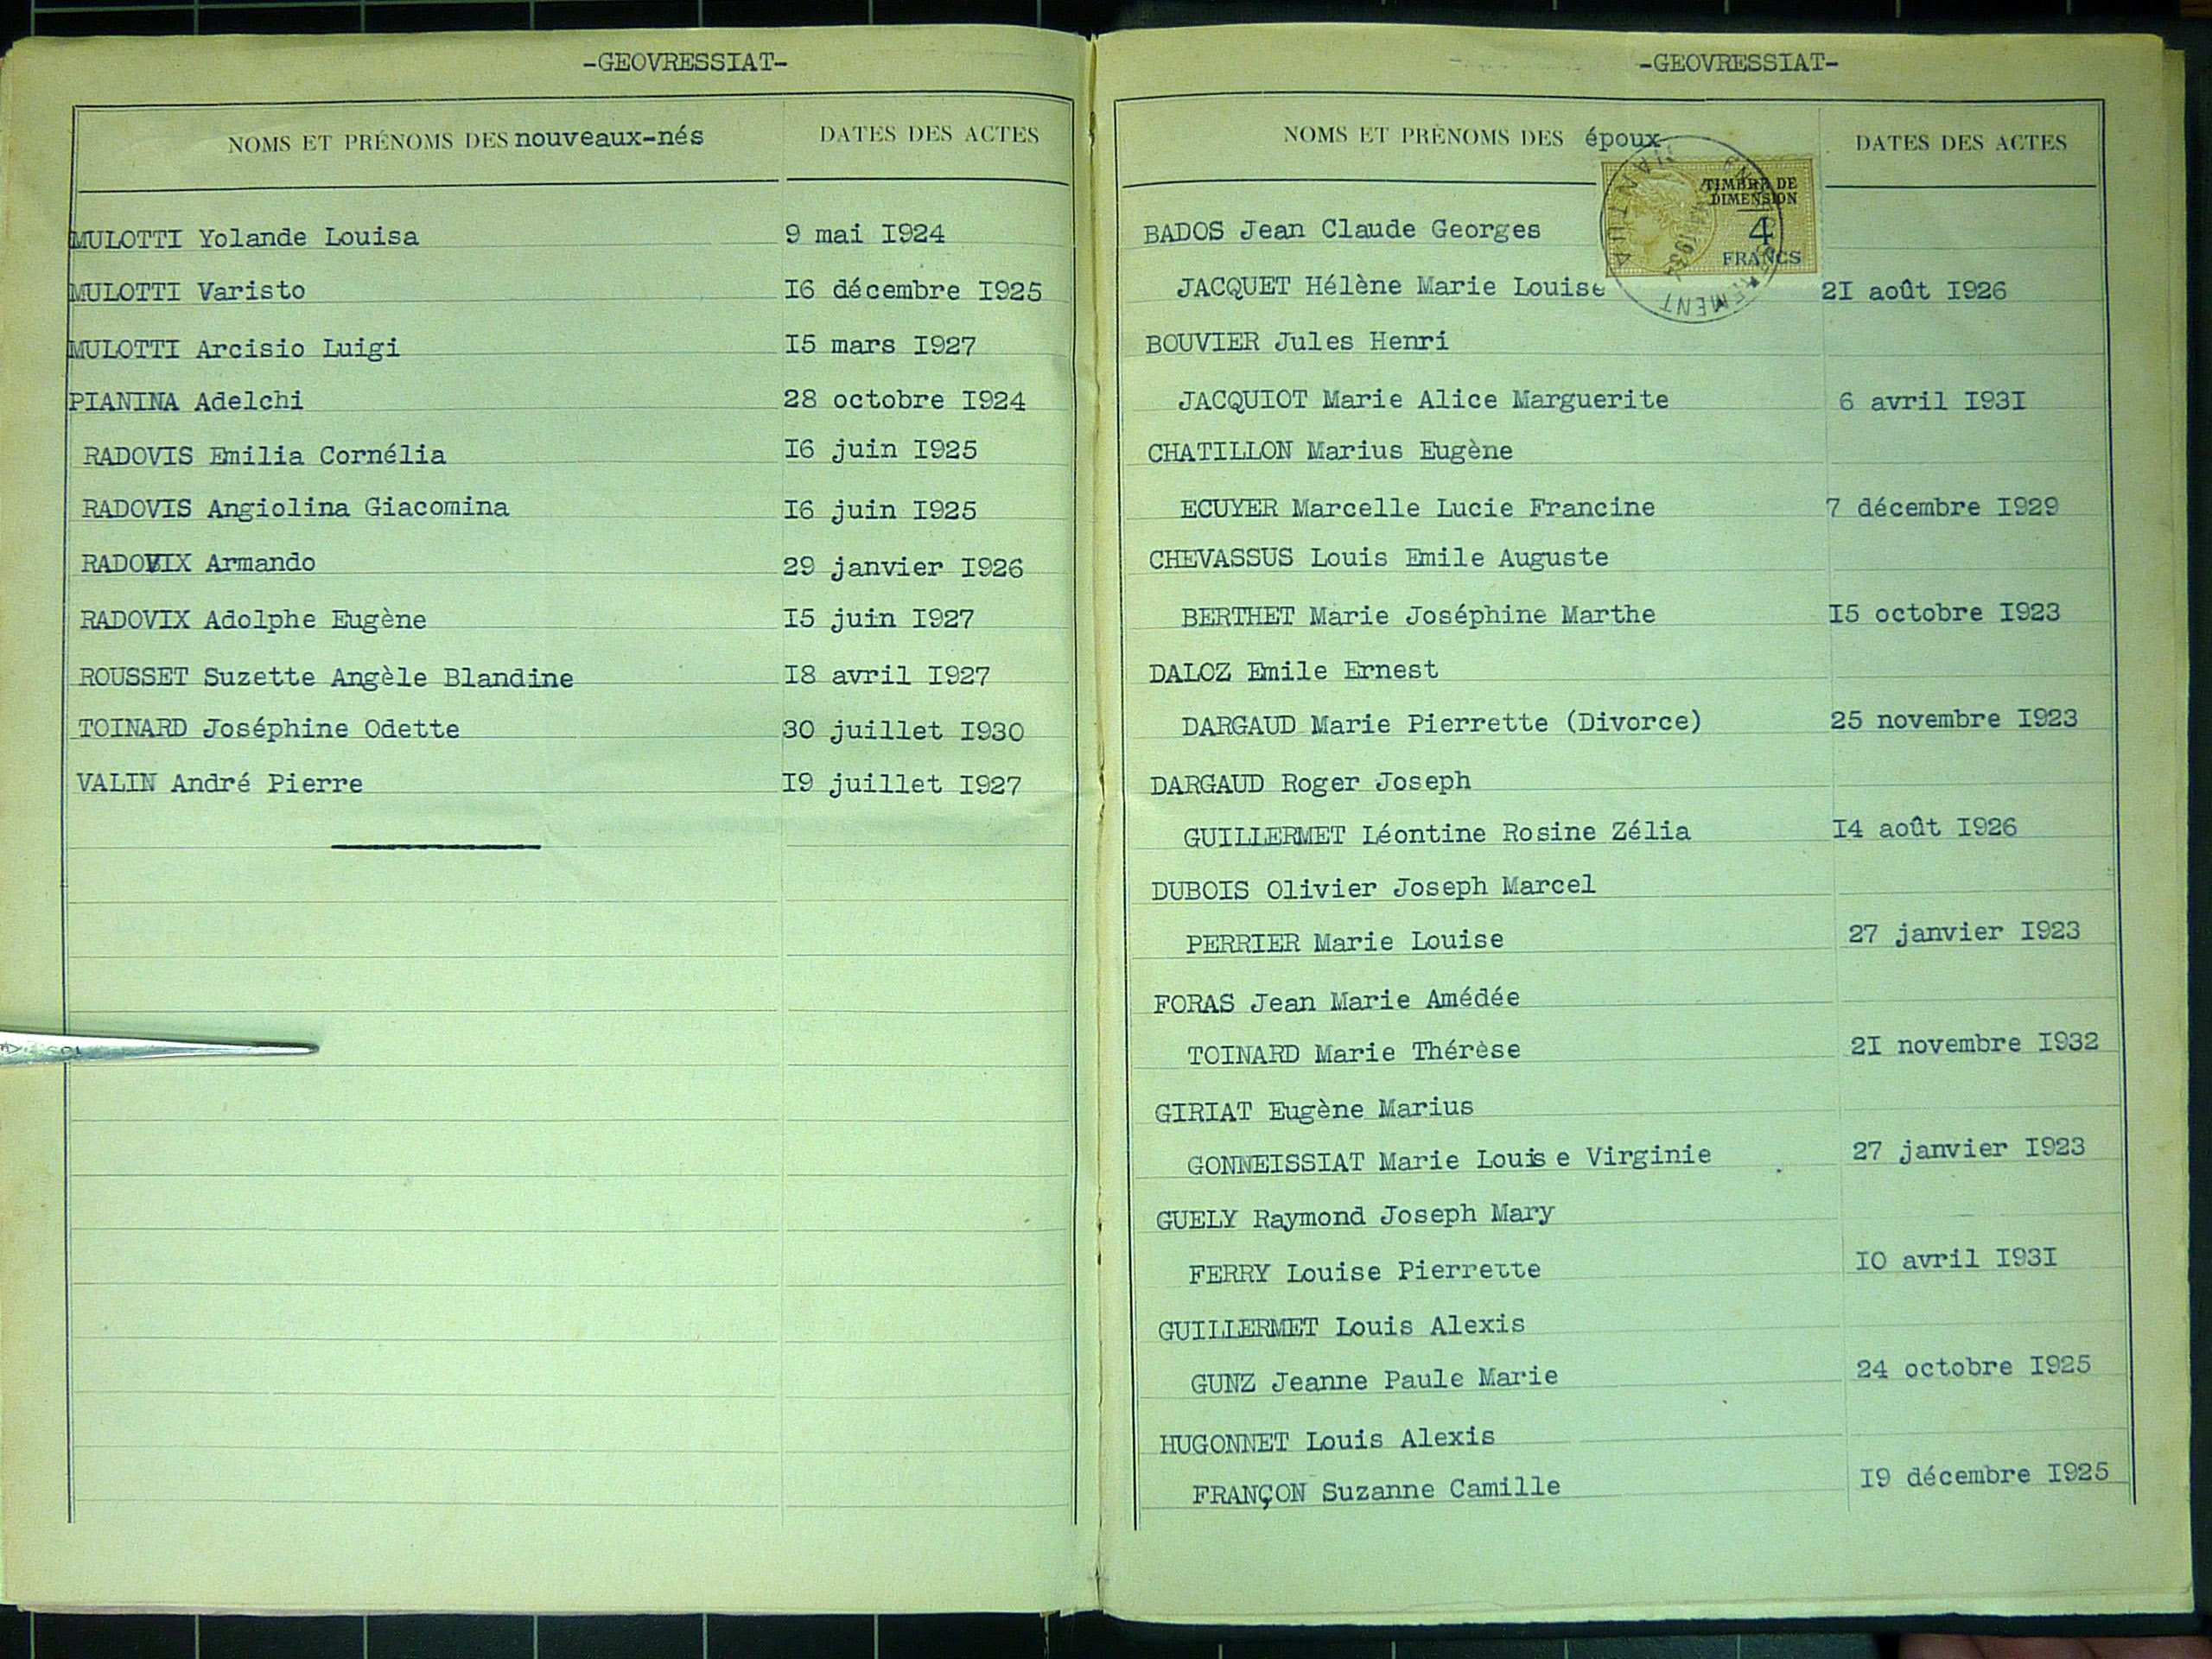 -GEOVRESSIAT-
NOMS ET PRÉNOMS DES nouveaux-nés DATES DES ACTES
MULOTTI Yolande Louisa 9 mai I924
MULOTTI Varisto I6 décembre I925
MULOTTI Arcisio Luigi I5 mars I927
PIANINA Adelchi 28 octobre I924
RADOVIS Emilia Cornélia I6 juin I925
RADOVIS Angiolina Giacomina I6 juin I925
RADOVIX Armando 29 janvier I926
RADOVIX Adolphe Eugène I5 juin I927
ROUSSET Suzette Angèle Blandine I8 avril I927
TOINARD Joséphine Odette 30 juillet I930
VALIN André Pierre I9 juillet I927
-GEOVRESSIAT-
NOMS ET PRÉNOMS DES époux DATES DES ACTES
TIMBRE DE
DIMENSION
4
FRANCS
BADOS Jean Claude Georges
JACQUET Hélène Marie Louise 2I août I926
BOUVIER Jules Henri
JACQUIOT Marie Alice Marguerite 6 avril I93I
CHATILLON Marius Eugène
ECUYER Marcelle Lucie Francine 7 décembre I929
CHEVASSUS Louis Emile Auguste
BERTHET Marie Joséphine Marthe I5 octobre I923
DALOZ Emile Ernest
DARGAUD Marie Pierrette (Divorce) 25 novembre I923
DARGAUD Roger Joseph
GUILLERMET Léontine Rosine Zélia I4 août I926
DUBOIS Olivier Joseph Marcel
PERRIER Marie Louise 27 janvier I923
FORAS Jean Marie Amédée
TOINARD Marie Thérèse 2I novembre I932
GIRIAT Eugène Marius
GONNEISSIAT Marie Louis e Virginie 27 janvier I923
GUELY Raymond Joseph Mary
FERRY Louise Pierrette IO avril I93I
GUILLERMET Louis Alexis
GUNZ Jeanne Paule Marie 24 octobre I925
HUGONNET Louis Alexis
FRANÇON Suzanne Camille I9 décembre I925